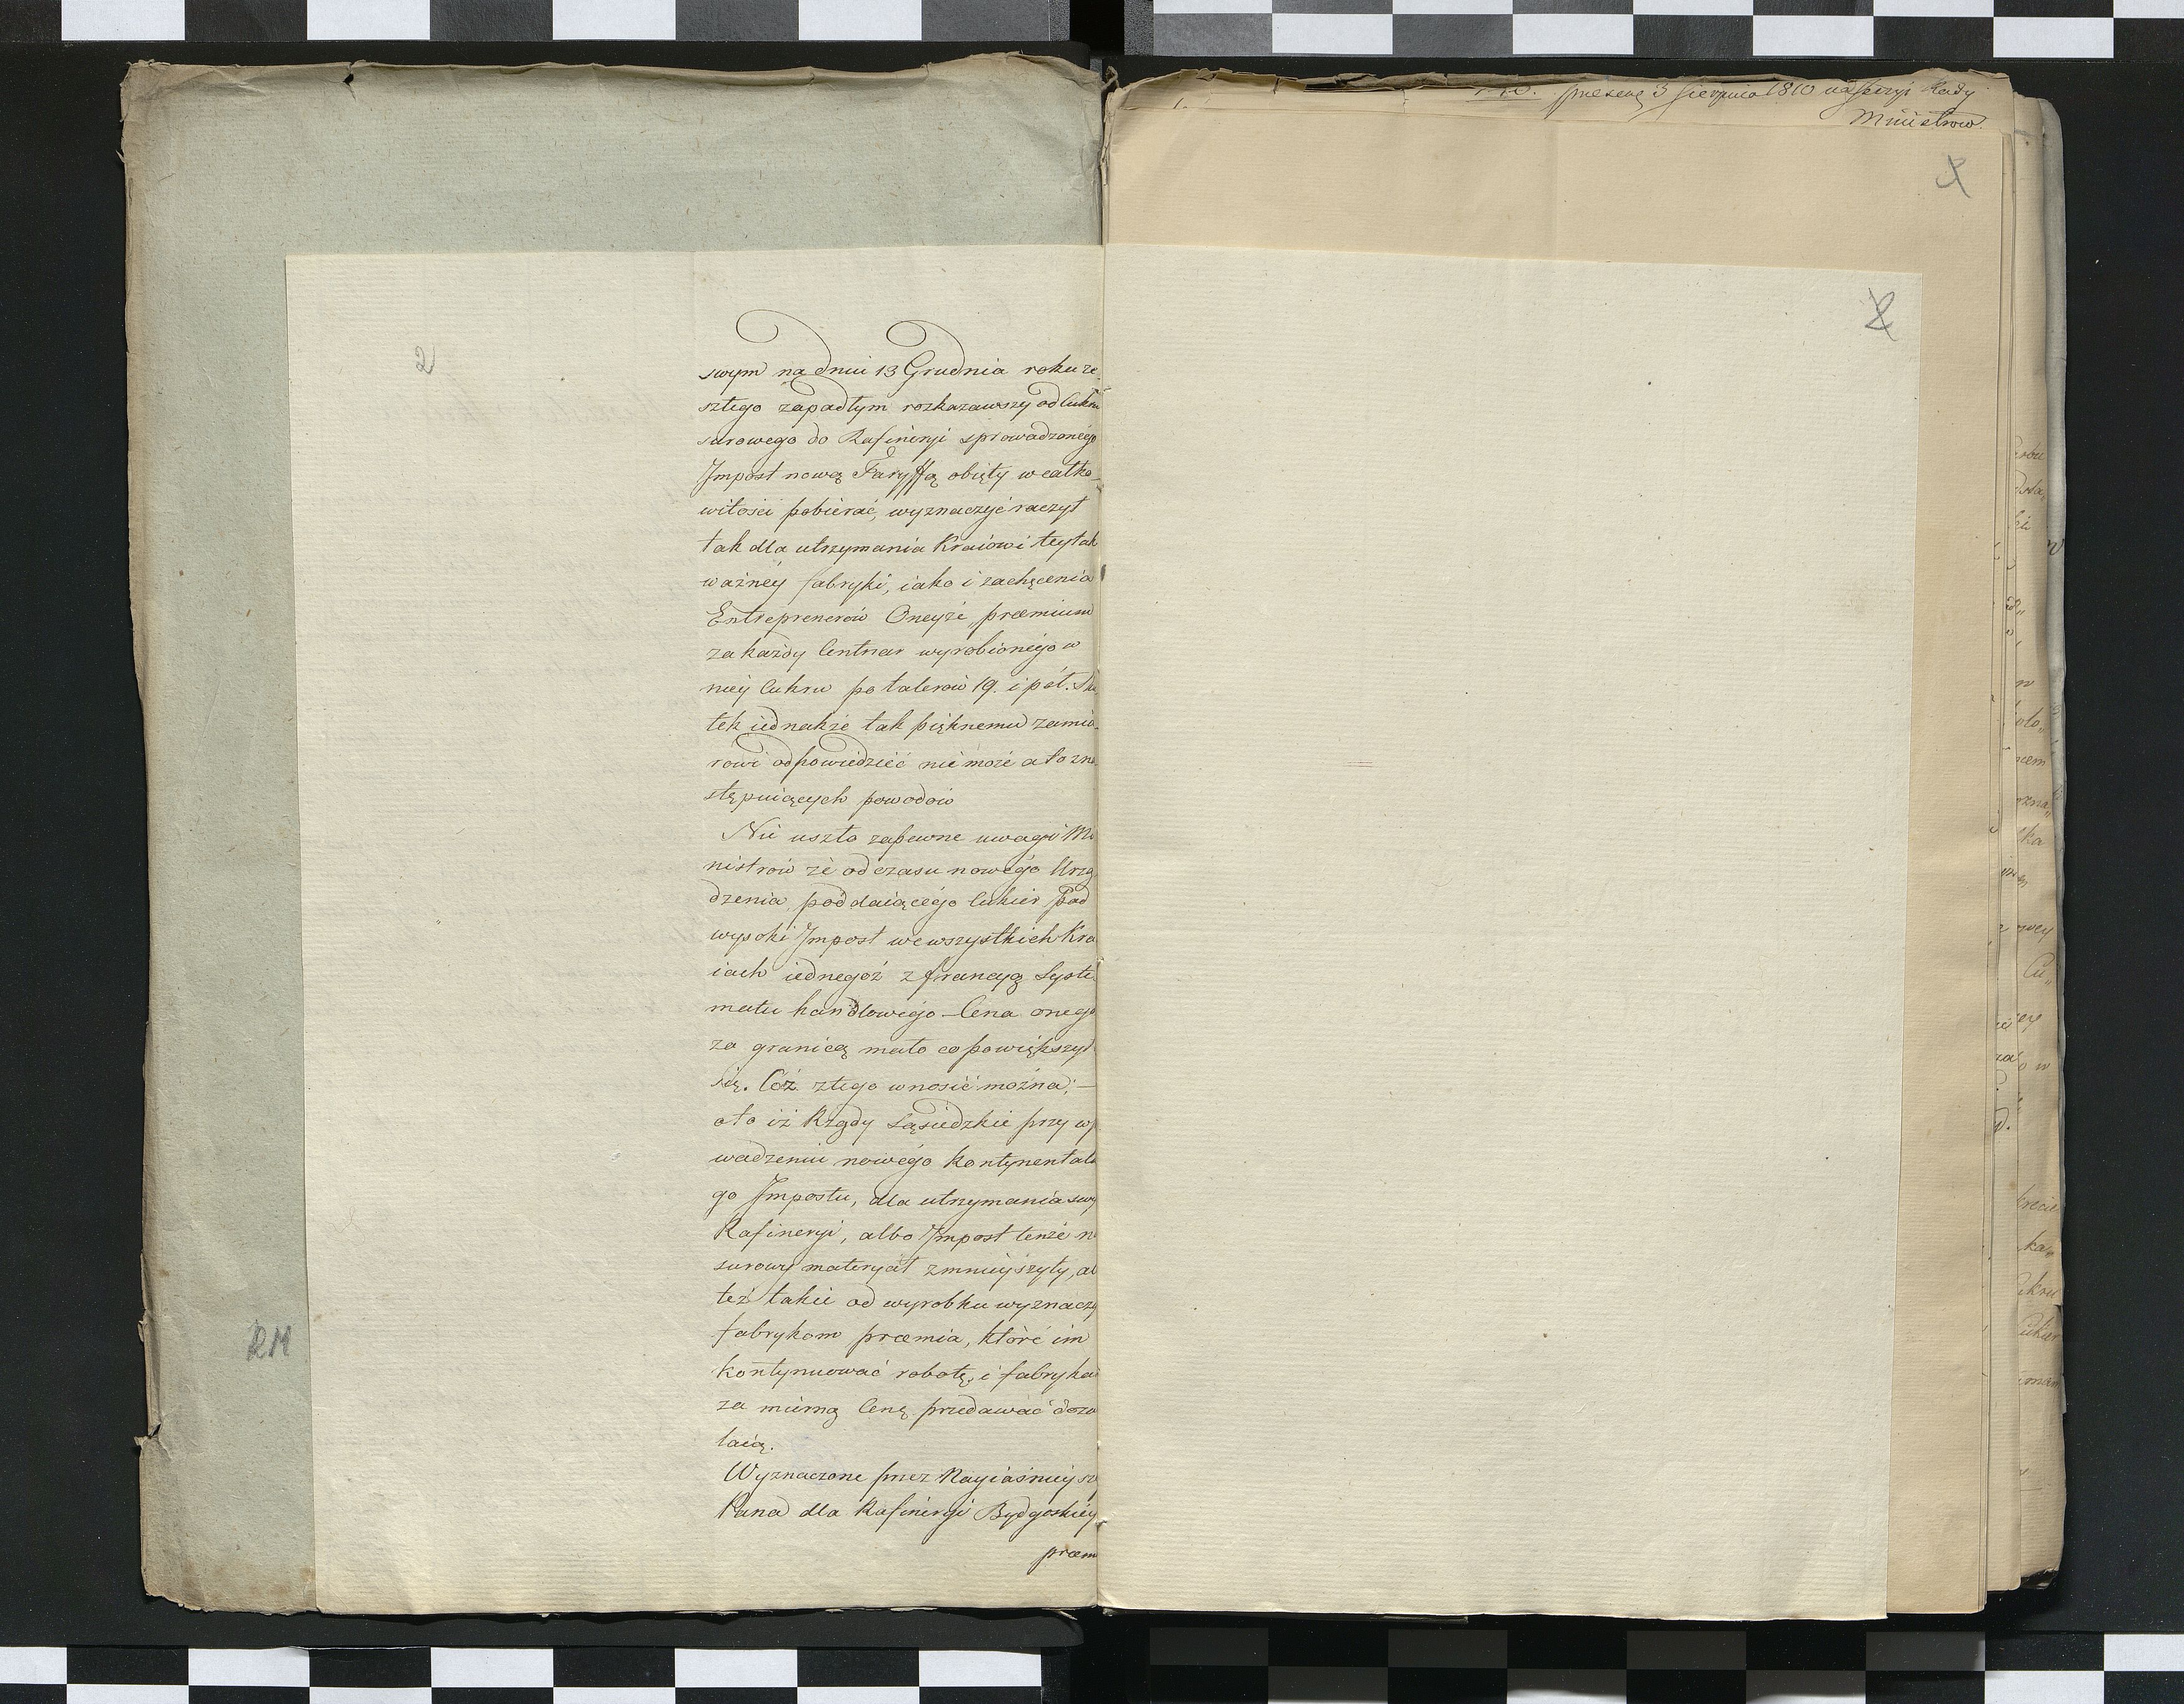 2
swym na dniu 13 Grudnia roku ze-
szłego zapadłym rozkazawszy od Cukru
surowego do Rafineryi sprowadzonego
Jmpost nową Taryffą obięty w całko-
witości pobierać, wyznaczyć raczył
tak dla utrzymania Kraiowi tey tak
ważney fabryki, iako i zachęcenia
Entreprenerów Oneyże „præmium
za każdy Centnar wyrobionego w
niey Cukru po talerów 19. i pół. Sku
tek iednakże tak pięknemu zamia-
rowi odpowiedzieć nie może a to z na
stępuiących powodów
Nie uszło zapewne uwagi Mi
nistrów że od czasu nowego Urzą
dzenia poddaiącego Cukier pod
wysoki Jmpost we wszystkich Kra
iach iednegoż z francyą Syste-
matu handlowego - Cena onego
za granicą mało co powiększył
się. Cóż z tego wnosić można; -
oto iż Rządy Sąsiedzkie przy w
wadzeniu nowego kontynental
go Jmpostu, dla utrzymania swy
Rafineryi, albo Jmpost tenże n
surowy materyał zmnieyszyły, al
też takie od wyrobku wyznaczy
fabrykom præmia, które im
kontynuować robotę, i fabryka
za mierną Cenę przedawać dozw
laią.
Wyznaczone przez Nayiaśnieysz
Pana dla Rafineryi Bydgoskiey
præm
RM
præsent 3 Sierpnia 1810 na Sessyi Rady
Ministrow.
1
2